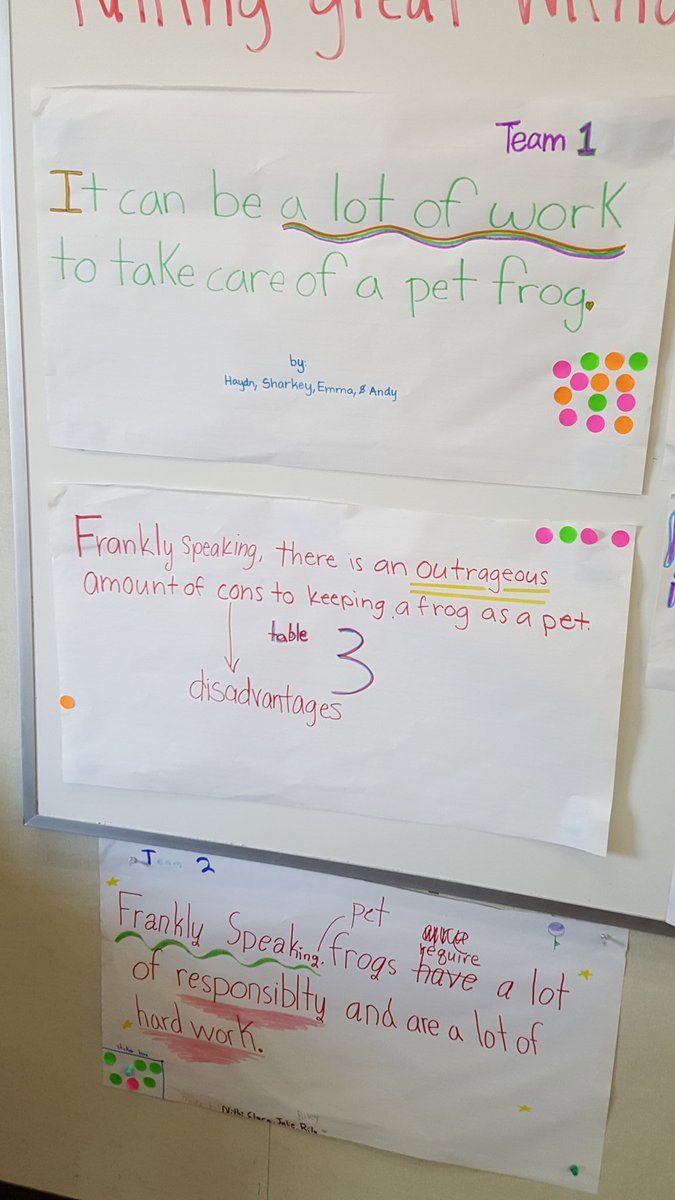 great
Team 1
It can be a lot of work
to take care of a pet frog.
by:
Haydn, Sharkey, Emma, & Andy
Frankly Speaking, there is an outrageous
amount of cons to keeping a frog as a pet.
table 3
disadvantages
Team 2
pet
require
Frankly Speaking, frogs have a lot
of responsiblty and are a lot of
hard work.
sticker box